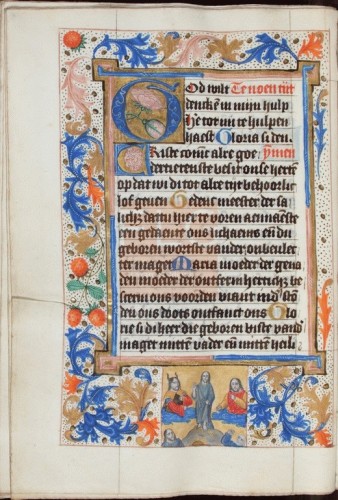 God wilt Te noen tijt
dencken in mijn hulp
He tot mi te hulpen
haest Gloria si den.
Criste coninc alre goe: ymen
dertierenste besit onse herte
op dat wi di tot alre tijt behoorlic
lof geuen Gedenc meester der sa
licheit dattu hier te voren aenmaeste
en gedaente ons lichaems en du
geboren worste vander onbeulec
ter maget Maria moeder der gena
den moeder der ontfermhertich be
scerm ons voorden viant ind ston
den ons doots ontfanct ons Glo
rie si di heer die geboren biste vand
maget mitten vader en mitten heili